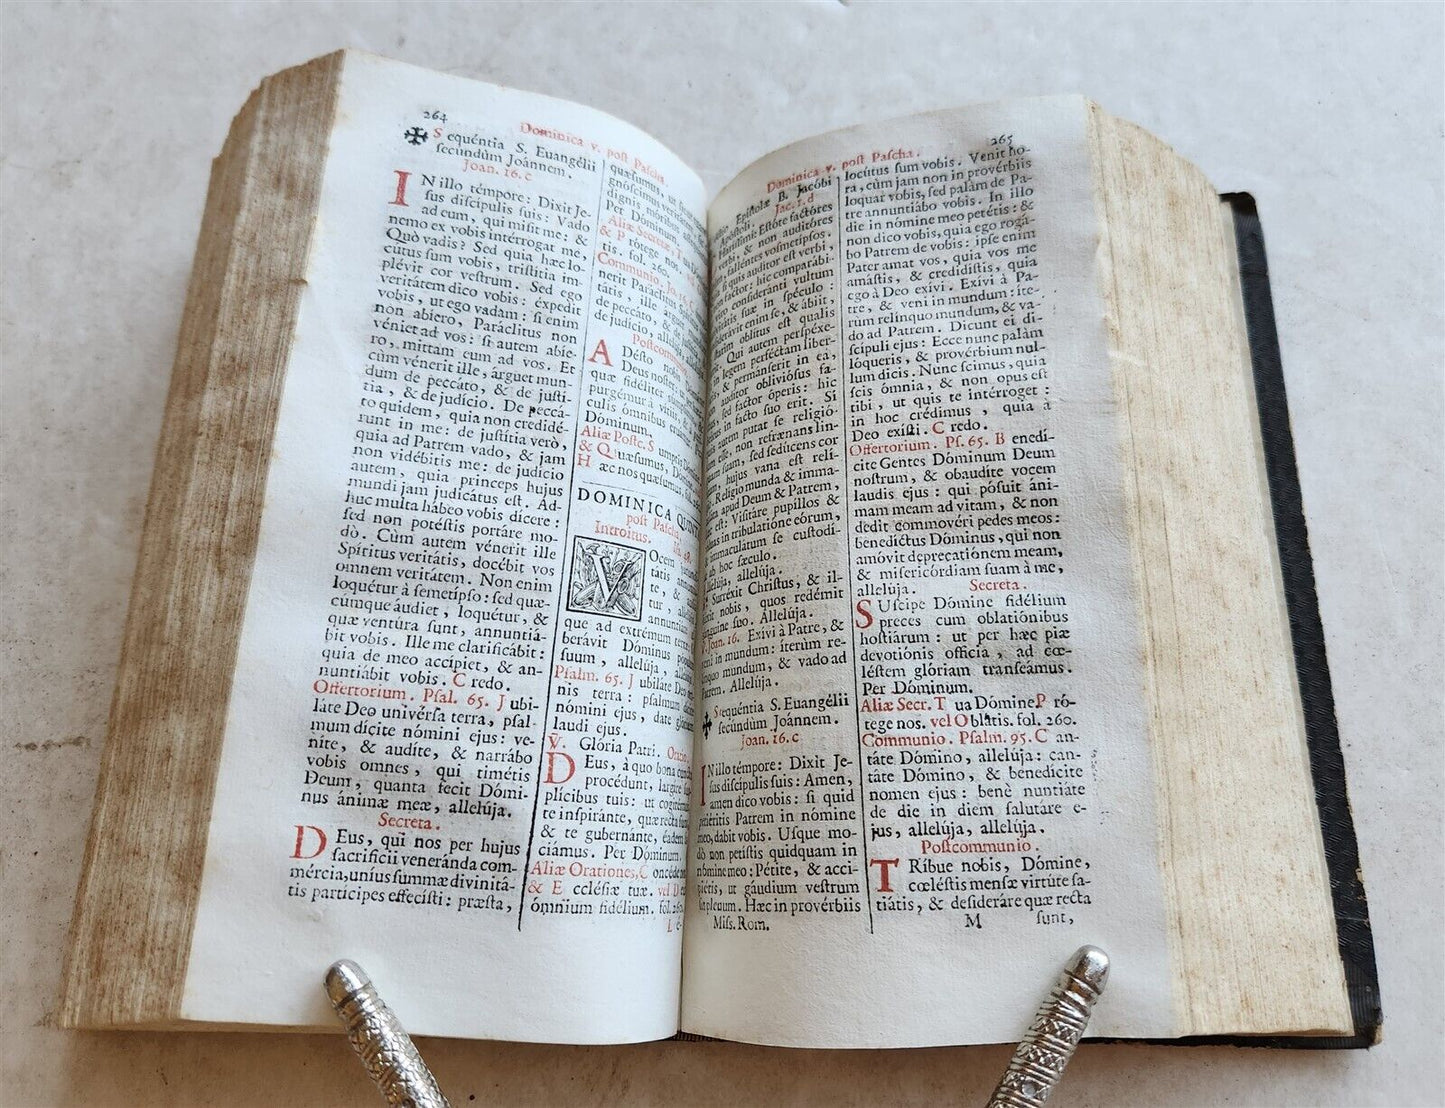 264
Dominica v. post Pascha.
✠ Sequéntia S. Euangélii
ſecundùm Joánnem.
Joan. 16. c
IN illo témpore: Dixit Je-
ſus diſcipulis ſuis: Vado
ad eum, qui miſit me: &
nemo ex vobis intérrogat me,
Quò vadis? Sed quia hæc lo-
cutus ſum vobis, triſtítia im-
plévit cor veſtrum. Sed ego
veritátem dico vobis: éxpedit
vobis, ut ego vadam: ſi enim
non abiero, Paráclitus non
véniet ad vos: ſi autem abie-
ro, mittam eum ad vos. Et
cùm vénerit ille, árguet mun-
dum de peccáto, & de juſti-
tia, & de judício. De peccá-
to quidem, quia non credidé-
runt in me: de juſtítia verò,
quia ad Patrem vado, & jam
non vidébitis me: de judício
autem, quia princeps hujus
mundi jam judicátus eſt. Ad-
huc multa hábeo vobis dícere:
ſed non potéſtis portáre mo-
dò. Cùm autem vénerit ille
Spíritus veritátis, docébit vos
omnem veritátem. Non enim
loquétur à ſemetípſo: ſed quæ-
cùmque áudiet, loquétur, &
quæ ventúra ſunt, annuntiá-
bit vobis. Ille me clarificábit:
quia de meo accípiet, & an-
nuntiábit vobis. Credo.
Offertorium. Pſal. 65. Jubi-
láte Deo univérſa terra, pſal-
mum dícite nómini ejus: ve-
níte, & audíte, & narrábo
vobis omnes, qui timétis
Deum, quanta fecit Dómi-
nus ánimæ meæ, allelúja.
Secreta.
DEus, qui nos per hujus
ſacrifícii veneránda com-
mércia, uníus ſummæ divinitá-
tis partícipes effeciſti: præſta,
quæſumus,
gnóſcimus
dignis móribus
Per Dóminum.
Aliæ Secretæ,
& Prótege nos
tis fol. 260.
Communio. Jo. 16. C
nerit Paráclitus
tátis, ille árguet
de peccáto, &
de judício, allelúja
Poſtcommunio
ADéſto
Deus noſter
quæ fidéliter
purgémur à vítiis
culis ómnibus
Dóminum.
Aliæ Poſtc. Sumptis
& Quæſumus, Dó
Hæc nos quæſumus.
DOMINICA QUIN
poſt Paſcha.
Introitus.
VOcem
tatis annun
te, &
tur, all
que ad extrémum terræ
berávit Dóminus pópulum
ſuum, allelúja,
Pſalm. 65. Jubiláte Deo
nis terra: pſalmum
nómini ejus, date glóriam
laudi ejus.
℣. Glória Patri. Oratio.
DEus, à quo bona cuncta
procédunt, largíre ſup-
plícibus tuis: ut cogitémus
te inſpiránte, quæ recta ſunt
& te gubernánte, éadem
ciámus. Per Dóminum.
Aliæ Orationes, Concéde
& Eccléſiæ tuæ. vel D
ómnium fidélium. fol. 260
Lé-
265
Dominica v. poſt Paſcha.
Epiſtolæ B. Jacóbi
Apóſtoli. Jac. 1. d
Chariſſimi: Eſtóte factóres
verbi, & non auditóres
falléntes voſmetípſos.
ſi quis auditor eſt verbi,
factor: hic comparábi-
conſideránti vultum
tátis ſuæ in ſpéculo:
derávit enim ſe, & ábiit,
oblítus eſt qualis
Qui autem perſpéxe-
legem perféctam liber-
& permánſerit in ea,
auditor oblivióſus fa-
ſed factor óperis: hic
in facto ſuo erit. Si
autem putat ſe religió-
eſſe, non refrænans lin-
ſuam, ſed ſedúcens cor
hujus vana eſt relí-
Relígio munda & imma-
apud Deum & Patrem,
eſt: Viſitáre pupíllos &
in tribulatióne eórum,
immaculátum ſe cuſtodí-
ab hoc ſæculo.
allelúja.
Surréxit Chriſtus, & il-
nobis, quos redémit
ſánguine ſuo. Allelúja.
Joan. 16. Exívi à Patre, &
veni in mundum: íterùm re-
mundum, & vado ad
Patrem. Allelúja.
✠ Sequéntia S. Euangélii
ſecúndùm Joánnem.
Joan. 16. c
IN illo témpore: Dixit Je-
ſus diſcípulis ſuis: Amen,
amen dico vobis: ſi quid
petiéritis Patrem in nómine
meo, dabit vobis. Uſque mo-
dò non petíſtis quidquam in
nómine meo: Pétite, & acci-
piétis, ut gáudium veſtrum
ſit plenum. Hæc in provérbiis
Miſſ. Rom.
locútus ſum vobis. Venit ho-
ra, cùm jam non in provérbiis
loquar vobis, ſed palàm de Pa-
tre annuntiábo vobis. In illo
die in nómine meo petétis: &
non dico vobis, quia ego rogá-
bo Patrem de vobis: ipſe enim
Pater amat vos, quia vos me
amáſtis, & credidíſtis, quia
ego à Deo exívi. Exívi à Pa-
tre, & veni in mundum: íte-
rùm relínquo mundum, & va-
do ad Patrem. Dicunt ei di-
ſcípuli ejus: Ecce nunc palàm
lóqueris, & provérbium nul-
lum dicis. Nunc ſcimus, quia
ſcis ómnia, & non opus eſt
tibi, ut quis te intérroget:
in hoc crédimus, quia à
Deo exíſti. Credo.
Offertorium. Pſ. 65. Benedí-
cite Gentes Dóminum Deum
noſtrum, & obaudíte vocem
laudis ejus: qui póſuit áni-
mam meam ad vitam, & non
dedit commovéri pedes meos:
benedíctus Dóminus, qui non
amóvit deprecatiónem meam,
& miſericórdiam ſuam à me,
allelúja. Secreta.
SUſcipe Dómine fidélium
preces cum oblatiónibus
hoſtiárum: ut per hæc piæ
devotiónis officia, ad cœ-
léſtem glóriam tranſeámus.
Per Dóminum.
Aliæ Secr. Tua Dómine Pró-
tege nos. vel Oblátis. fol. 260.
Communio. Pſalm. 95. Can-
táte Dómino, allelúja: can-
táte Dómino, & benedícite
nomen ejus: benè nuntiáte
de die in diem ſalutáre e-
jus, allelúja, allelúja.
Poſtcommunio.
TRíbue nobis, Dómine,
cœléſtis menſæ virtúte ſa-
tiátis, & deſideráre quæ recta
M ſunt,